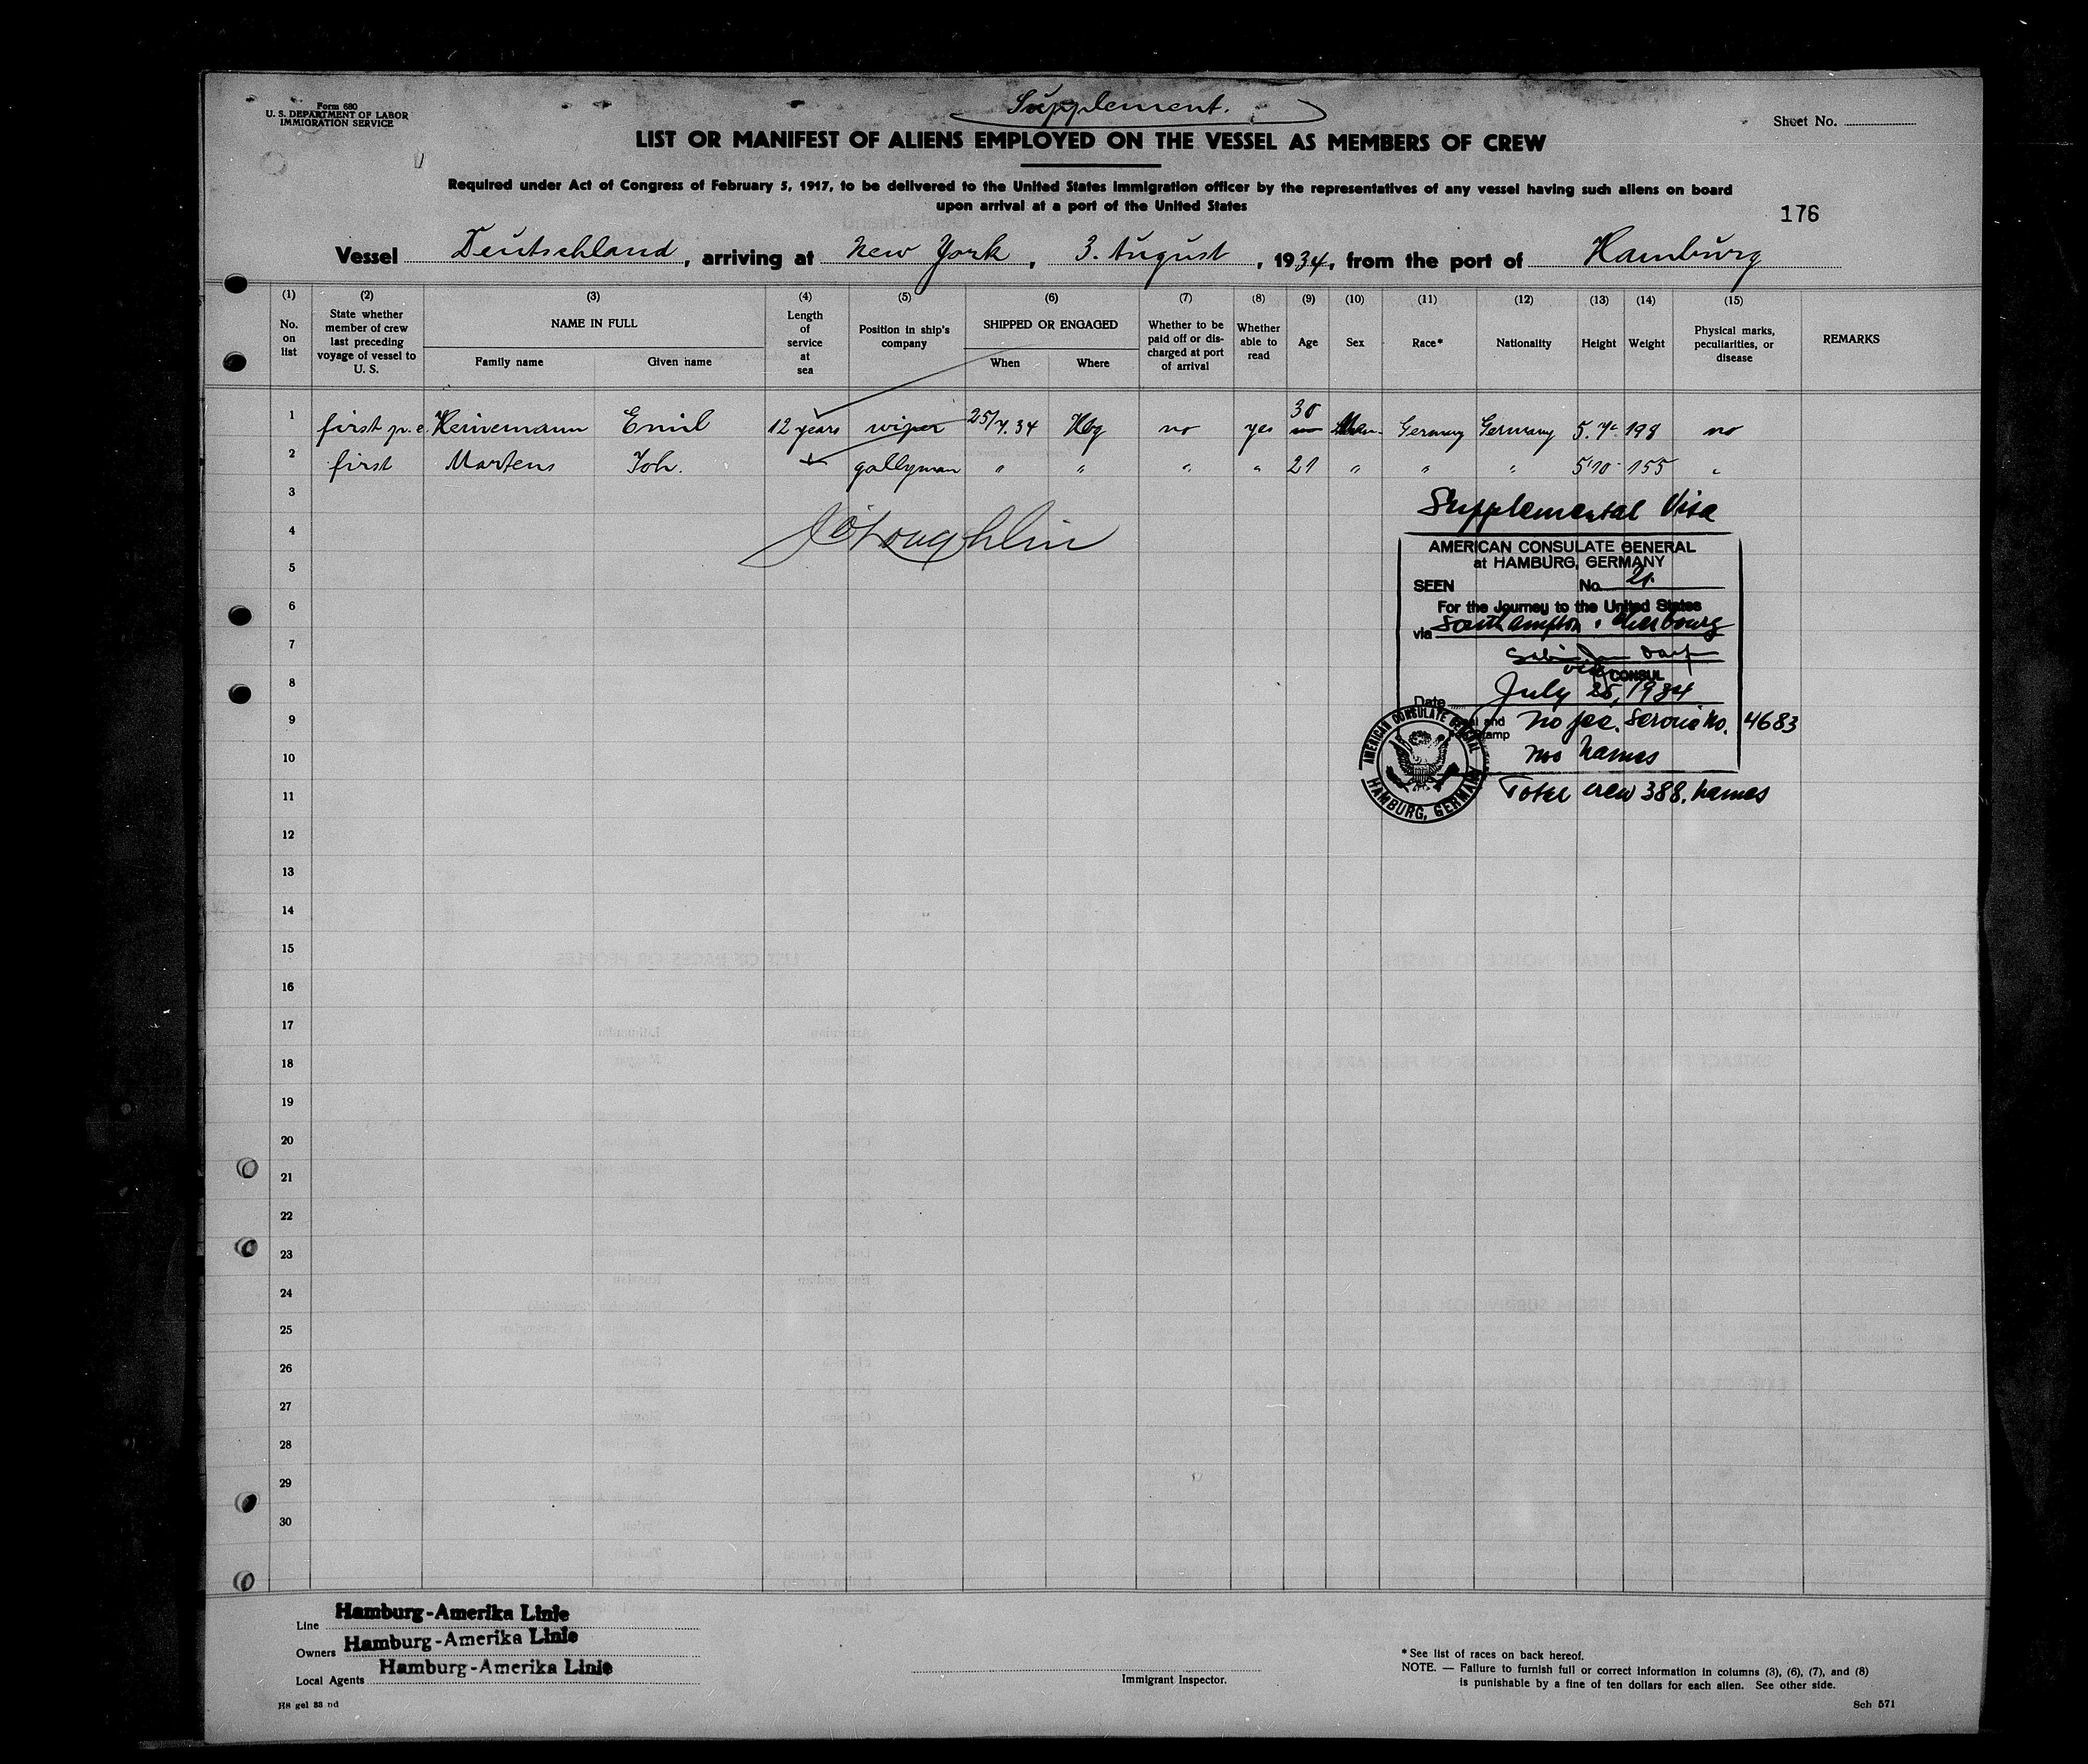 Form 680
U. S. DEPARTMENT OF LABOR
IMMIGRATION SERVICE
Supplement.
Sheet No.
LIST OR MANIFEST OF ALIENS EMPLOYED ON THE VESSEL AS MEMBERS OF CREW
Required under Act of Congress of February 5, 1917, to be delivered to the United States Immigration officer by the representatives of any vessel having such aliens on board
upon arrival at a port of the United States
176
Vessel Deutschland, arriving at New York, 3. August, 1934, from the port of Hamburg
(1) (2) (3) (4) (5) (6) (7) (8) (9) (10) (11) (12) (13) (14) (15)
No. on list
State whether member of crew last preceding voyage of vessel to U. S.
NAME IN FULL
Family name
Given name
Length of service at sea
Position in ship's company
SHIPPED OR ENGAGED
When
Where
Whether to be paid off or discharged at port of arrival
Whether able to read
Age
Sex
Race*
Nationality
Height
Weight
Physical marks, peculiarities, or disease
REMARKS
1 first p. e. Heinemann Emil 12 years wiper 25/7.34 Hbg no yes 30 Man. Germany Germany 5.7 198 no
2 first Martens Joh. gallyman " " " " 21 " " " 5'10 155 "
3
4
5
6
7
8
9
10
11
12
13
14
15
16
17
18
19
20
21
22
23
24
25
26
27
28
29
30
J O'Loughlin
Supplemental Visa
AMERICAN CONSULATE GENERAL
at HAMBURG, GERMANY
SEEN No. 21
For the Journey to the United States
via Southampton, Cherbourg
CONSUL
Date July 25, 1934
No fee. Service No. 4683
Two names
Total crew 388. names
AMERICAN CONSULATE GENERAL
HAMBURG, GERMANY
Line Hamburg-Amerika Linie
Owners Hamburg-Amerika Linie
Local Agents Hamburg-Amerika Linie
H8 gel 33 nd
Immigrant Inspector.
* See list of races on back hereof.
NOTE. — Failure to furnish full or correct information in columns (3), (6), (7), and (8)
is punishable by a fine of ten dollars for each alien. See other side.
Sch 571